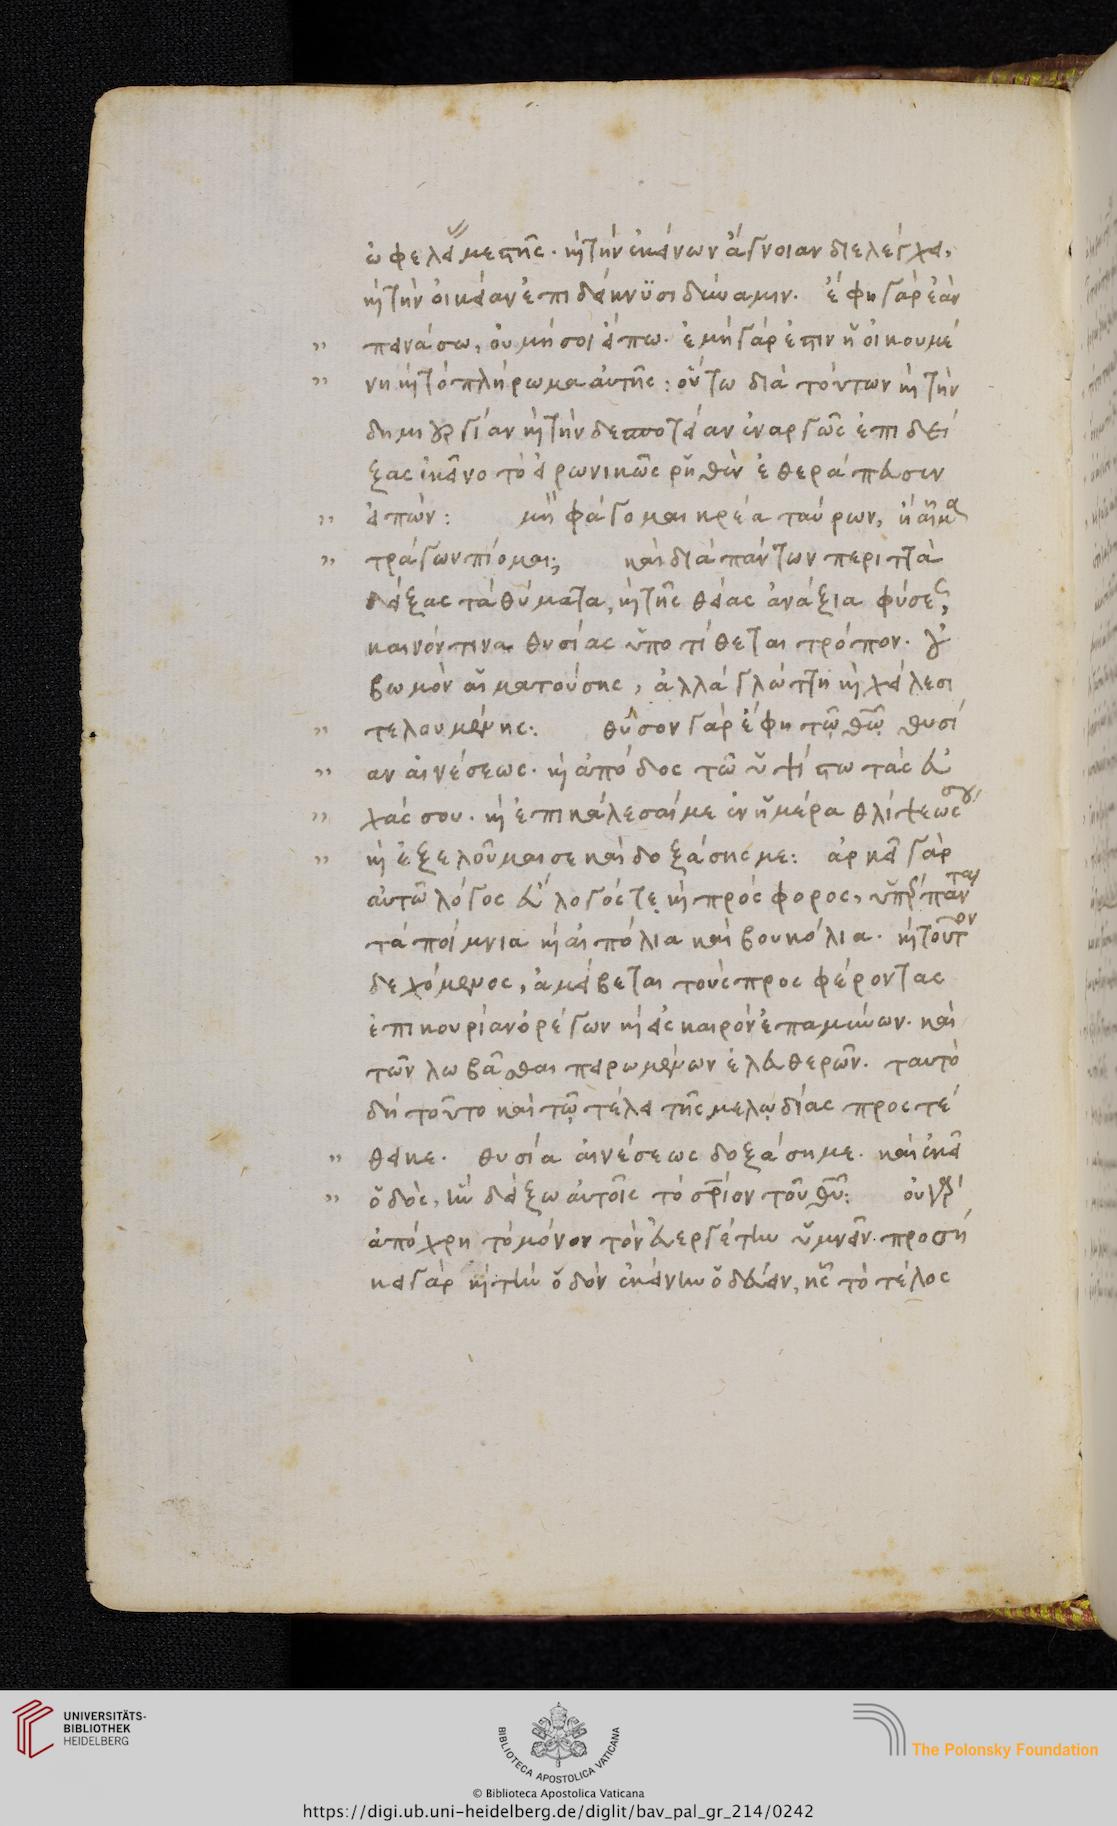 ὠφελεῖ μεστῆς. καὶ τὴν ἐκείνων ἄγνοιαν διελέγχει,
καὶ τὴν οἰκείαν ἐπιδείκνυσι δύναμιν. ἔφη γὰρ ἐὰν
" πεινάσω, οὐ μή σοι εἴπω. ἐμὴ γάρ ἐστιν ἡ οἰκουμέ
" νη καὶ τὸ πλήρωμα αὐτῆς: οὕτω διὰ τούτων καὶ τὴν
δημιουργίαν καὶ τὴν δεσποτείαν ἐναργῶς ἐπιδεί
ξας ἐκεῖνο τὸ εἰρωνικῶς ῥηθὲν ἐθεράπευσεν
" εἰπών: μὴ φάγομαι κρέα ταύρων, ἢ αἷμα
" τράγων πίομαι; καὶ διὰ πάντων περιττὰ
δείξας τὰ θύματα, καὶ τῆς θείας ἀνάξια φύσεως,
καινόν τινα θυσίας ὑποτίθεται τρόπον. οὐ
βωμὸν αἱματούσης, ἀλλὰ γλώττῃ καὶ χείλεσι
" τελουμένης: θῦσον γὰρ ἔφη τῷ θῶ θυσί
" αν αἰνέσεως. καὶ ἀπόδος τῶ ὑψίστω τὰς εὐ
" χάς σου. καὶ ἐπικάλεσαί με ἐν ἡμέρα θλίψεως σου,
" καὶ ἐξελοῦμαι σε καὶ δοξάσης με: ἀρκεῖ γὰρ
αὐτῶ λόγος εὔλογός τε καὶ πρόσφορος, ὑπὲρ πάντα
τὰ ποίμνια καὶ αἰπόλια καὶ βουκόλια. καὶ τοῦτον
δεχόμενος, ἀμείβεται τοὺς προσφέροντας
ἐπικουρίαν ὀρέγων καὶ εἰς καιρὸν ἐπαμύνων. καὶ
τῶν λωβᾶσθαι πειρωμένων ἐλευθερῶν. ταυτὸ
δὴ τοῦτο καὶ τῷ τέλει τῆς μελῳδίας προστέ
" θεικε. θυσία αἰνέσεως δοξάση με. καὶ ἐκεῖ
" ὁδὸς, ἣν δείξω αὐτοῖς τὸ σρίον τοῦ θυ: οὐ γὰρ
ἀπόχρη τὸ μόνον τὸν εὐεργέτην ὑμνεῖν. προσή
κει γὰρ καὶ τὴν ὁδὸν ἐκείνην ὁδεύειν, ἧς τὸ τέλος
UNIVERSITÄTS-
BIBLIOTHEK
HEIDELBERG
BIBLIOTECA APOSTOLICA VATICANA
The Polonsky Foundation
© Biblioteca Apostolica Vaticana
https://digi.ub.uni-heidelberg.de/diglit/bav_pal_gr_214/0242